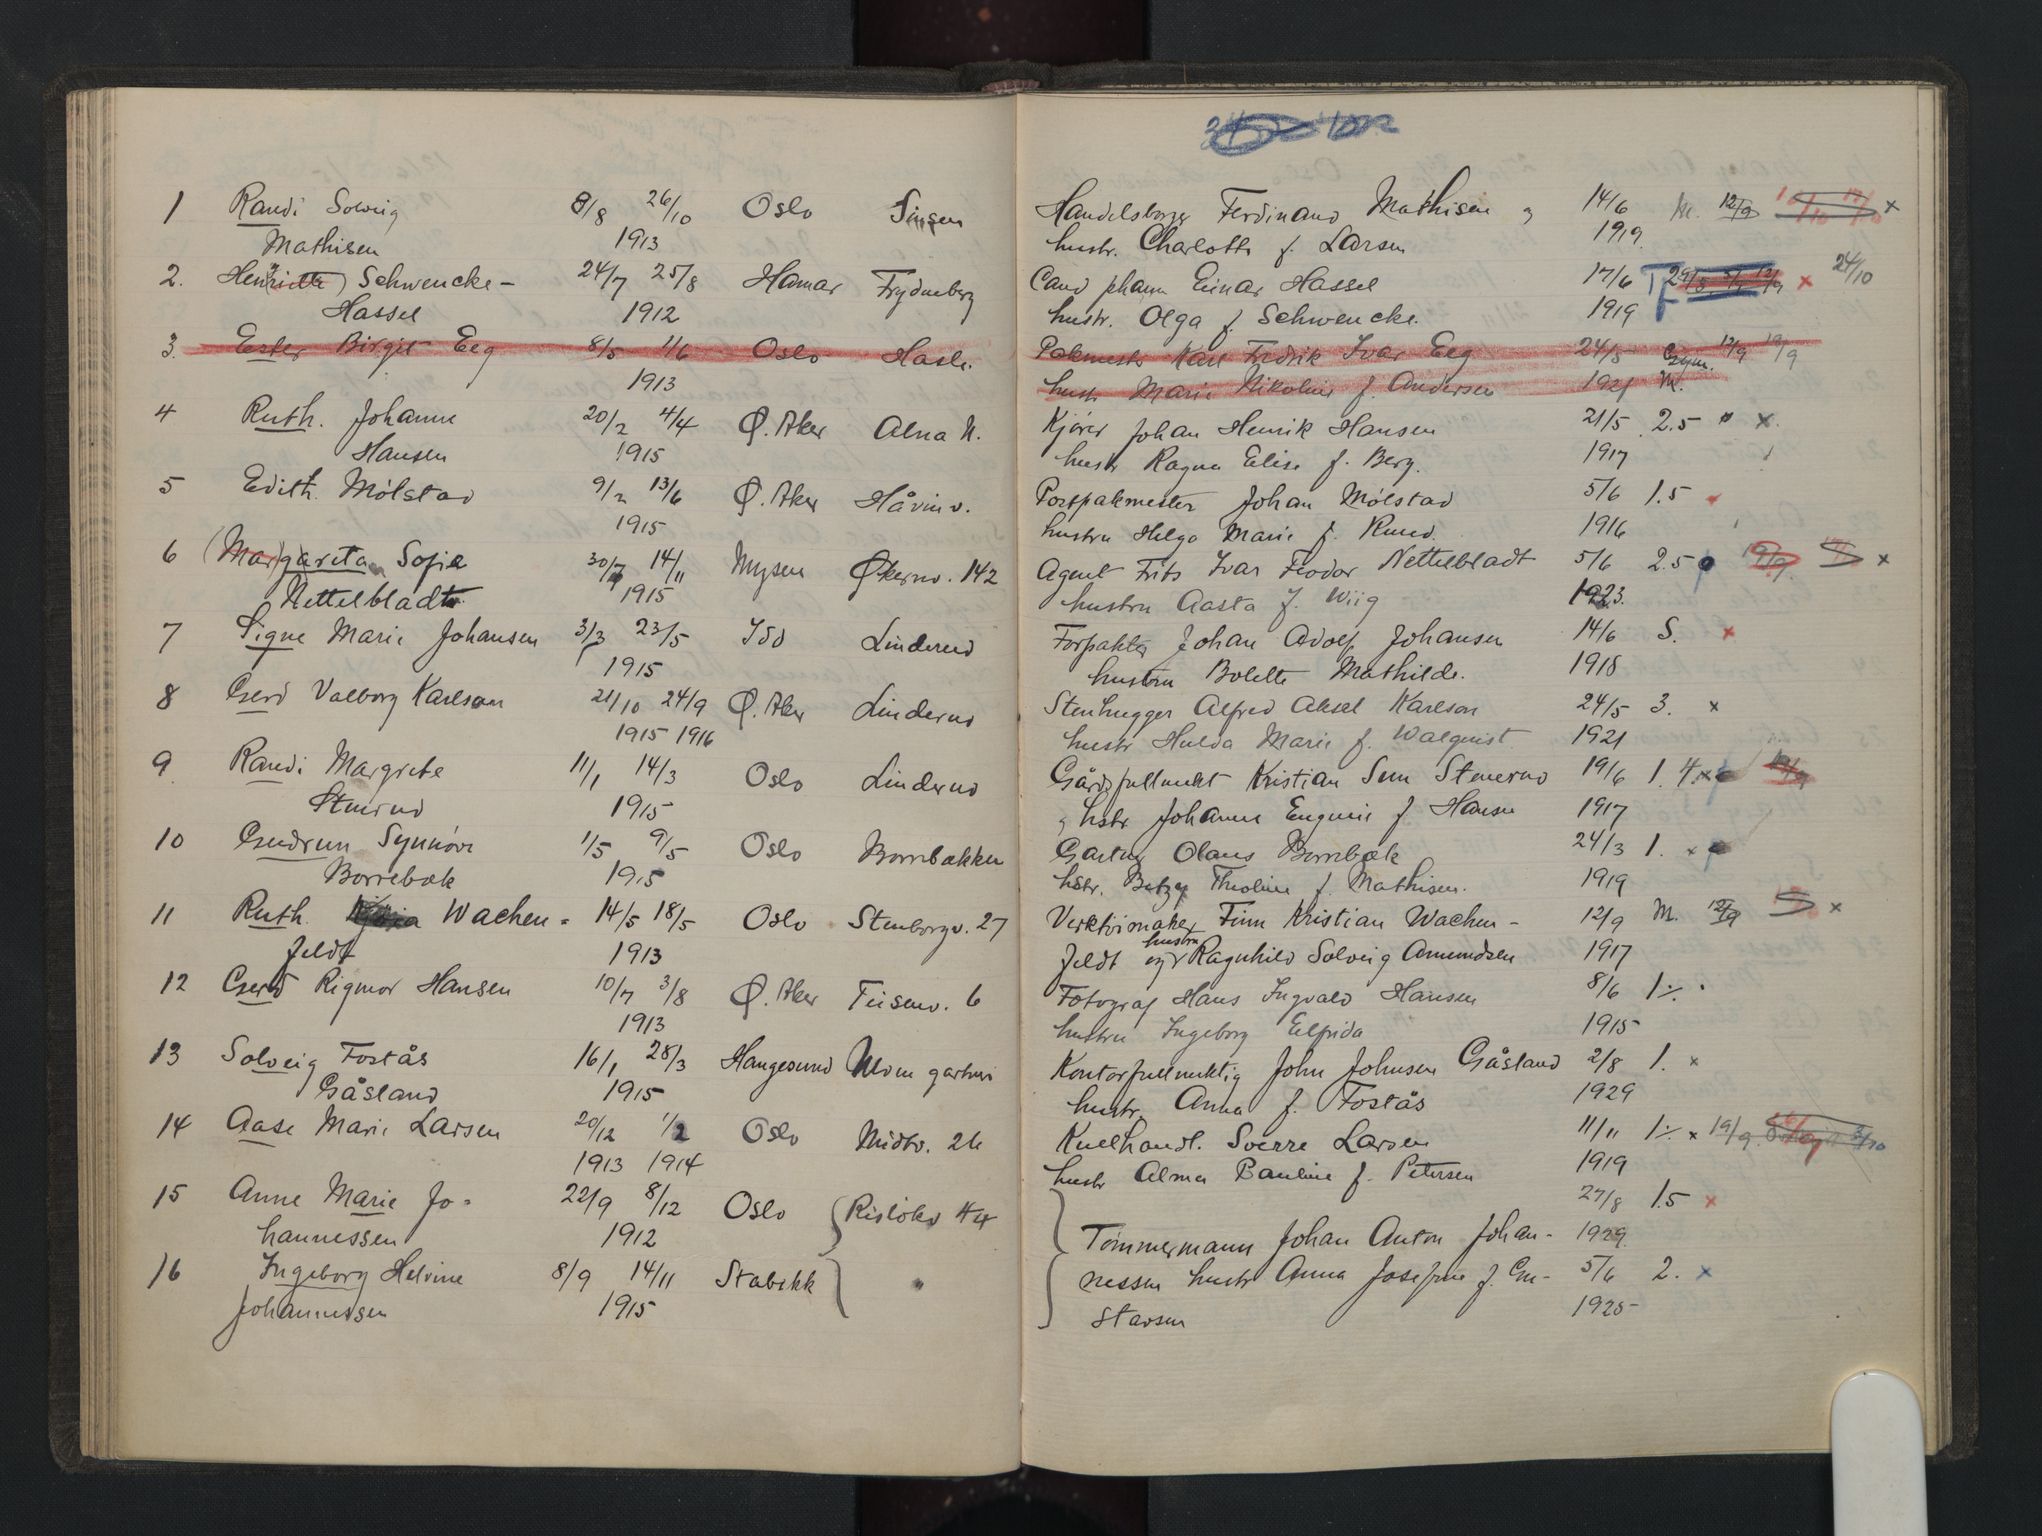 1 Randi Solveig 8/8 26/10 Oslo Sinsen
Mathisen 1913
2. Henriette) Schwencke- 24/7 25/8 Hamar Frydenberg
Hassel 1912
3. Ester Birgit Eeg 8/5 1/6 Oslo Hasle.
1913
4 Ruth. Johanne 20/2 4/4 Ø. Aker Alna
Hansen 1915
5 Edith. Mölstad 9/2 13/6 Ø. Aker Håvinv.
1915
6 (Mar)gareta Sofie 30/7 14/11 Mysen Økernv. 142
Nettelbladt 1915
7 Signe Marie Johansen 3/3 23/5 Idd Linderud
1915
8 Gerd Valborg Karlson 21/10 24/9 Ø. Aker Linderud
1915 1916
9 Randi Margrete 11/1 14/3 Oslo Linderud
Stenerud 1915
10 Gudrun Synnöve 1/5 9/5 Oslo Borrebakken
Borrebæk 1915
11 Ruth. Wachen- 14/5 18/5 Oslo Stenborgv. 27
feldt 1913
12 Gerd Rigmor Hansen 10/7 3/8 Ø. Aker Teisenv. 6
1913
13 Solveig Fostås 16/1 28/3 Haugesund Ulven gartneri
Gåsland 1915
14 Aase Marie Larsen 20/12 1/2 Oslo Midtv. 26
1913 1914
15 Anne Marie Jo- 22/9 8/12 Oslo Rislökv 44
hannessen 1912
16 Ingeborg Helvine 8/9 14/11 Stabekk "
Johannessen 1915
Handelsborger Ferdinand Mathisen og 14/6 M. 12/9 x
hustr. Charlotte f. Larsen 1919
Cand pharm Einar Hassel 17/6 T 29/5 x 24/10
hustr. Olga f. Schwencke. 1919
Pakmester Karl Fredrik Ivar Eeg 24/5 Gym. 12/9 19/9
hustr Marie Nikoline f. Andersen 1921 M.
Kjører Johan Henrik Hansen 21/5 2.5 x
hustr Ragna Elise f. Berg. 1917
Postpakmester Johan Mölstad 5/6 1.5
hustru Helga Marie f. Ruud. 1916
Agent Frits Ivar Feodor Nettelbladt 5/6 2.5 19/9 x
hustru Aasta f. Wiig 1923.
Forpakter Johan Adolf Johansen 14/6 S. x
hustru Bolette Mathilde. 1918
Stenhugger Alfred Aksel Karlson 24/5 3. x
hustr Hulda Marie f. Walquist 1921
Gårdsfullmekt Kristian Sem Stenerud 19/6 1. 4. x
og hstr Johanne Eugenie f Hansen 1917
Gartner Olaus Borrebæk 24/3 1. x
hstr. Betzy Theoline f. Mathisen. 1919
Verktöimaker Finn Kristian Wachen- 12/9 M. 12/9 x
feldt og hustru Ragnhild Solveig Amundsen 1917
Fotograf Hans Ingvald Hansen 8/6 1
hustru Ingeborg Elfrida 1915
Kontorfullmektig John Johnsen Gåsland 2/8 1. x
hustr. Anna f. Fostås 1929
Kullhandl. Sverre Larsen 11/11 1 x 19/9
hustr Alma Pauline f. Petersen 1919
27/8 1.5 x
Tömmermann Johan Anton Johan- 1929
nessen hustr Anna Josefine f. Gu- 5/6 2. x
stavsen 1925